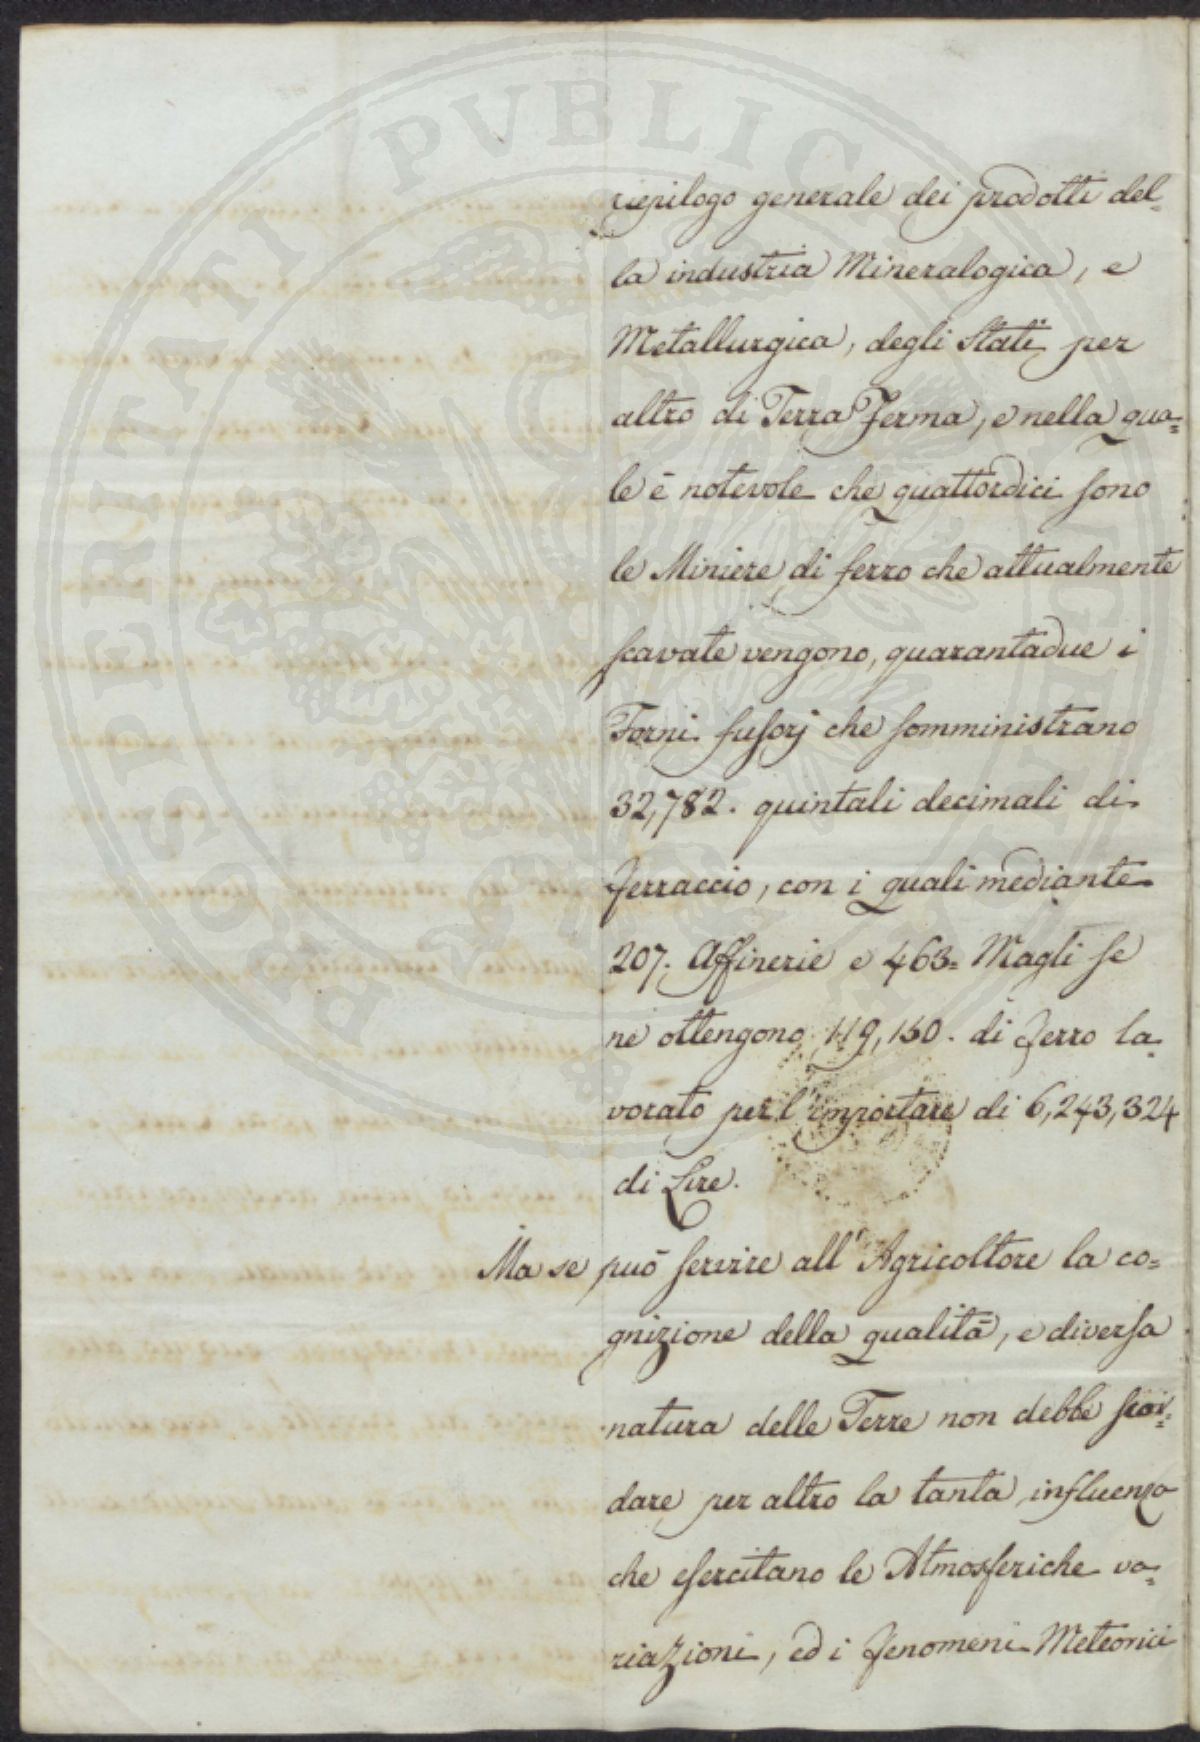 riepilogo generale dei prodotti del-
la industria Mineralogica, e
Metallurgica, degli Stati per
altro di Terra Ferma, e nella qua=
le è notevole che quattordici sono
le Miniere di ferro che attualmente
scavate vengono, quarantadue i
Forni fusorj che somministrano
32,782. quintali decimali di
ferraccio, con i quali mediante
207. Affinerie e 463= Magli se
ne ottengono 119,150. di ferro la=
vorato per l'importare di 6,243,324
di Lire.
Ma se può servire all'Agricoltore la co=
gnizione della qualità, e diversa
natura delle Terre non debbe scor=
dare per altro la tanta influenza
che esercitano le Atmosferiche va=
riazioni, ed i fenomeni Meteorici
PROSPERITATI PVBLICAE